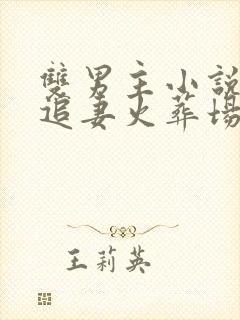 雙男主小說
追妻火葬場
王莉英